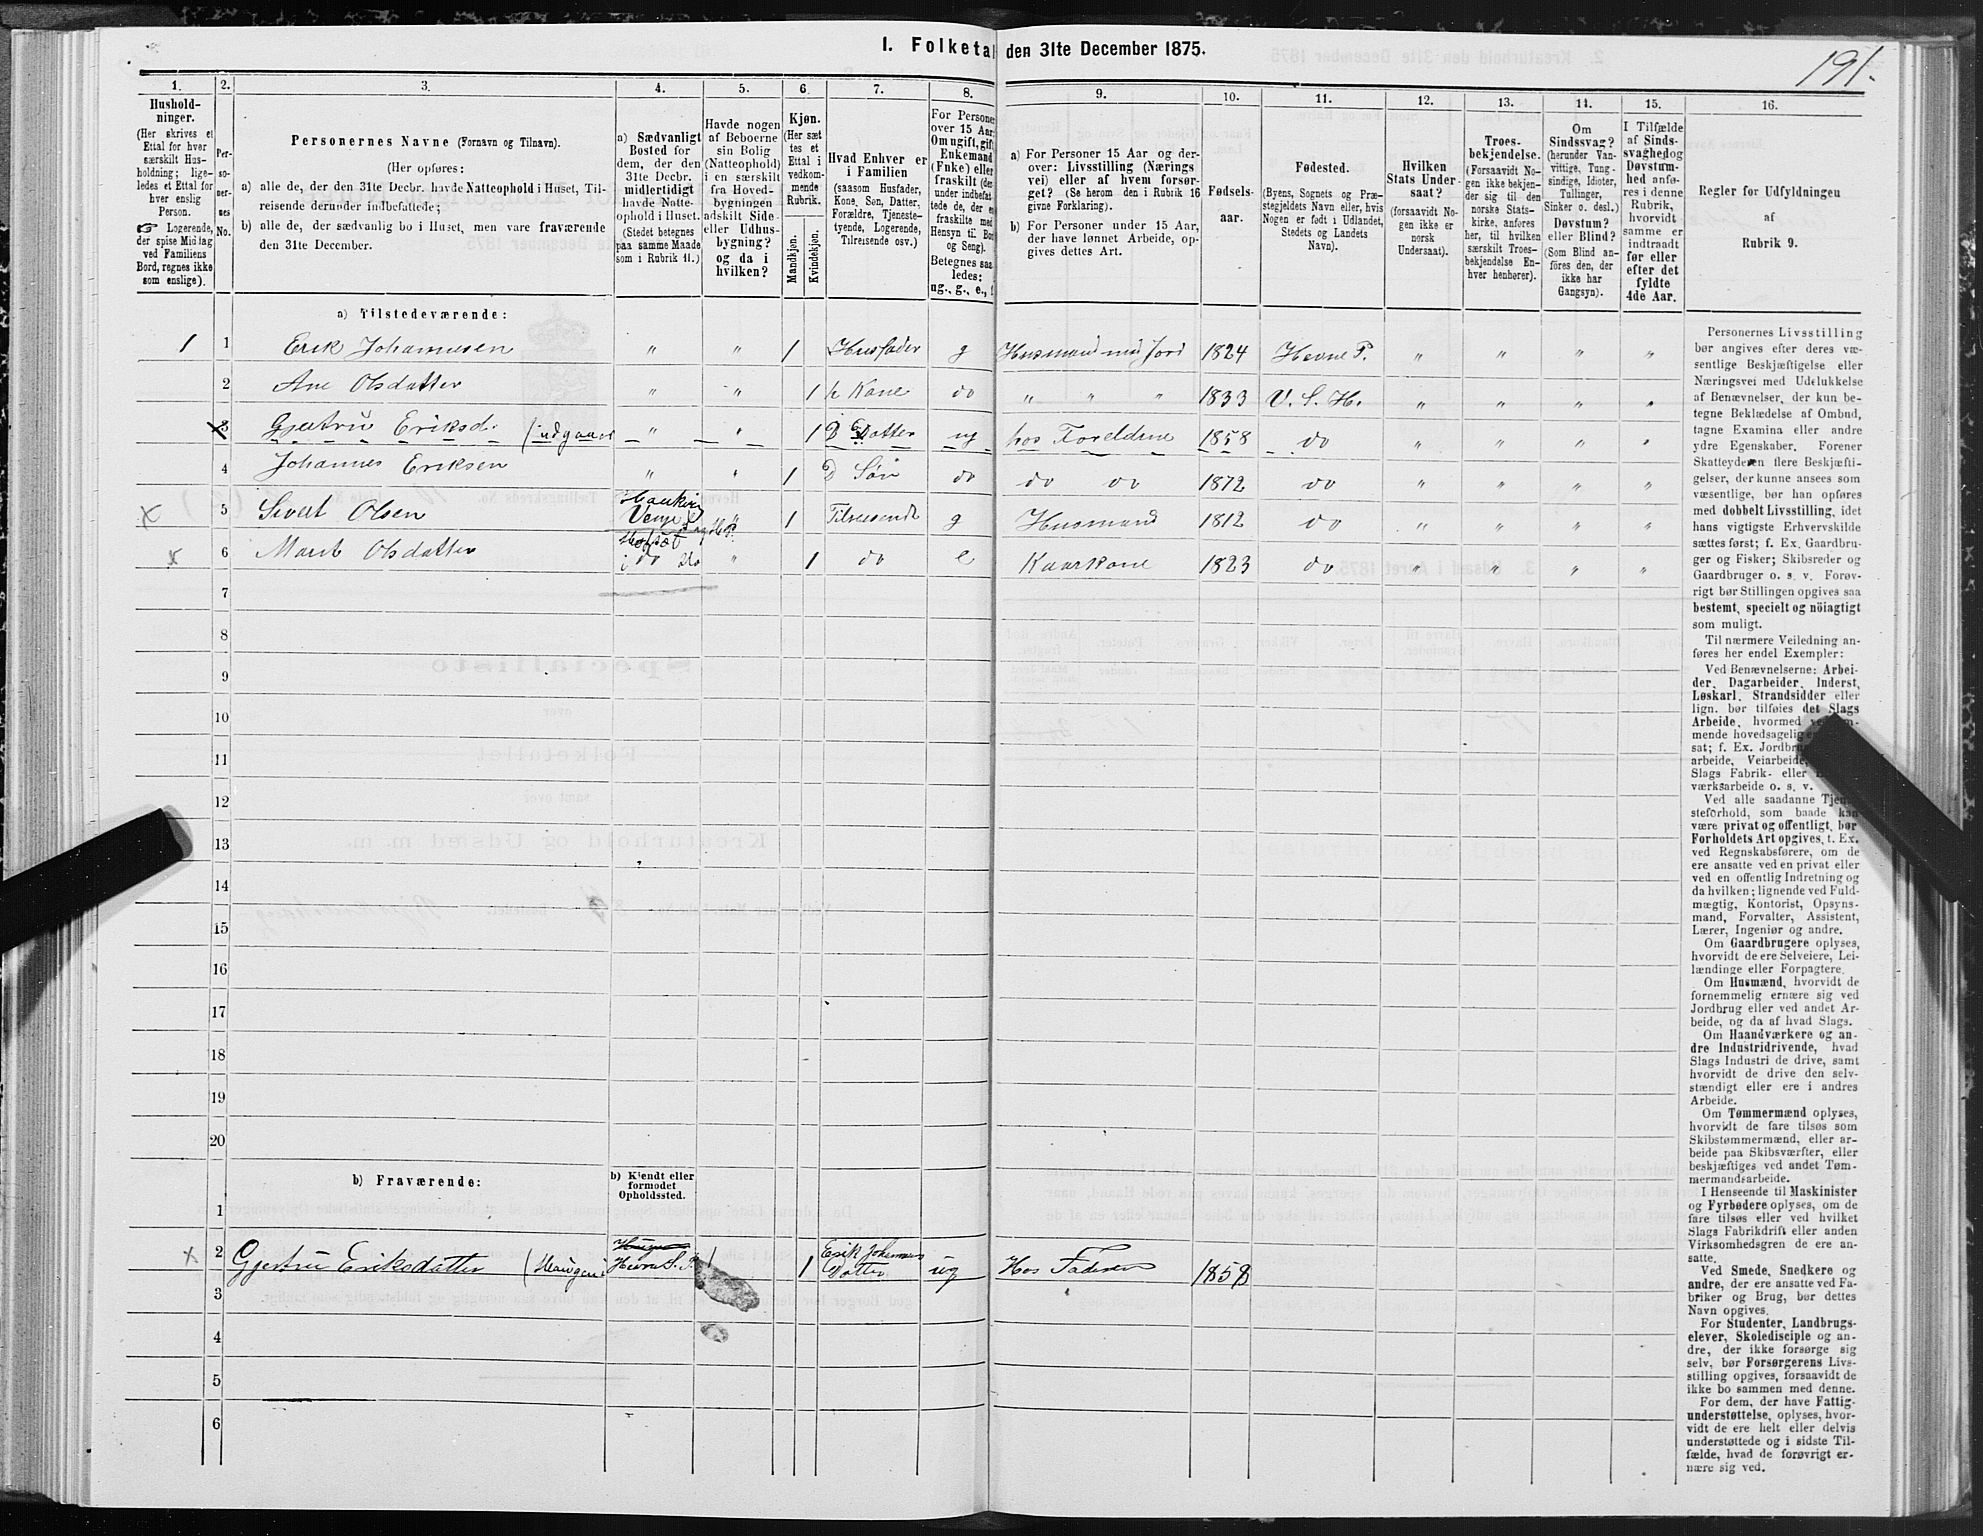 I. Folketal den 31te December 1875.
191.
1. 2. 3. 4. 5. 6. 7. 8. 9. 10. 11. 12. 13. 14. 15. 16.
Hushold-
ninger.
(Her skrives et
Ettal for hver
særskilt Hus-
holdning; lige-
ledes et Ettal for
hver enslig
Person.
☞ Logerende,
der spise Middag
ved Familiens
Bord, regnes ikke
som enslige).
Per-
so-
ner-
nes
No.
Personernes Navne (Fornavn og Tilnavn).
(Her opføres:
a) alle de, der den 31te Decbr. havde Natteophold i Huset, Til-
reisende derunder indbefattede;
b) alle de, der sædvanlig bo i Huset, men vare fraværende
den 31te December.
a) Sædvanligt
Bosted for
dem, der den
31te Decbr.
midlertidigt
havde Natte-
ophold i Huset.
(Stedet betegnes
paa samme Maade
som i Rubrik 11.)
Havde nogen
af Beboerne
sin Bolig
(Natteophold)
i en særskilt
fra Hoved-
bygningen
adskilt Side-
eller Udhus-
bygning?
og da i
hvilken?
Kjøn.
(Her sæt
tes et
Ettal i
vedkom-
mende
Rubrik.
Mandkjøn.
Kvindekjøn.
Hvad Enhver er
i Familien
(saasom Husfader,
Kone, Søn, Datter,
Forældre, Tjeneste-
tyende, Logerende,
Tilreisende osv.)
For Personer
over 15 Aar:
Om ugift, gift,
Enkemand
(Enke) eller
fraskilt (der-
under indbefat-
tede de, der e
fraskilte med
Hensyn til Bo
og Seng).
Betegnes saa
ledes:
ug., g., e.,
a) For Personer 15 Aar og der-
over: Livsstilling (Nærings
vei) eller af hvem forsør-
get? (Se herom den i Rubrik 16
givne Forklaring).
b) For Personer under 15 Aar,
der have lønnet Arbeide, op-
gives dettes Art.
Fødsels-
aar.
Fødested.
(Byens, Sognets og Præ-
stegjeldets Navn eller, hvis
Nogen er født i Udlandet,
Stedets og Landets
Navn).
Hvilken
Stats Under-
saat?
(forsaavidt No-
gen ikke er
norsk
Undersaat).
Troes-
bekjendelse.
(Forsaavidt No-
gen ikke bekjen-
der sig til den
norske Stats-
kirke, anføres
her, til hvilken
særskilt Troes-
bekjendelse En-
hver henhører).
Om
Sindssvag?
(herunder Van-
vittige, Tung-
sindige, Idioter,
Tullinger,
Sinker o. desl.)
Døvstum?
eller Blind?
(Som Blind an-
føres den, der
ikke har
Gangsyn).
I Tilfælde
af Sinds-
svaghed og
Døvstum-
hed anfø-
res i denne
Rubrik,
hvorvidt
samme er
indtraadt
før eller
efter det
fyldte
4de Aar.
Regler for Udfyldningen
af
Rubrik 9.
a) Tilstedeværende:
1 1 Erik Johannesen " " 1 Husfader g Husmand med Jord 1824 Hevne P. " " " "
2 Ane Olsdatter " " 1 h Kone do " " " 1833 V. S. H. " " " "
3 Gjertru Eriksd. " " 1 D Datter ug hos Foreldrene 1858 do " " " "
4 Johannes Eriksen " " 1 D Søn do do do 1872 do " " " "
x 5 Sivert Olsen " 1 Tilreisende g Husmand 1812 do " " " "
x 6 Marit Olsdatter i do do " 1 do e Kaarkone 1823 do " " " "
7
8
9
10
11
12
13
14
15
16
17
18
19
20
b) Fraværende:
b) Kjendt eller
formodet
Opholdssted.
1
x 2 Gjertru Eriksdatter 1 Erik Johannes Datter ug Hos Faderen 1858
3
4
5
6
Personernes Livsstilling
bør angives efter deres væ-
sentlige Beskjæftigelse eller
Næringsvei med Udelukkelse
af Benævnelser, der kun be-
tegne Beklædelse af Ombud,
tagne Examina eller andre
ydre Egenskaber. Forener
Skatteyderen flere Beskjæfti-
gelser, der kunne ansees som
væsentlige, bør han opføres
med dobbelt Livsstilling, idet
hans vigtigste Erhvervskilde
sættes først; f. Ex. Gaardbru-
ger og Fisker; Skibsreder og
Gaardbruger o. s. v. Forøv-
rigt bør Stillingen opgives saa
bestemt, specielt og nöiagtigt
som muligt.
Til nærmere Veiledning an-
føres her endel Exempler:
Ved Benævnelserne: Arbei-
der, Dagarbeider, Inderst,
Løskarl, Strandsidder eller
lign. bør tilføies det Slags
Arbeide, hvormed
mende hovedsagelig
sat; f. Ex. Jordbru
arbeide, Veiarbeide,
Slags Fabrik- eller
værksarbeide o. s. v.
Ved alle saadanne Tjen
steforhold, som baade kan
være privat og offentligt, bør
Forholdets Art opgives, t. Ex.
ved Regnskabsførere, om de
ere ansatte ved en privat eller
ved en offentlig Indretning og
da hvilken; lignende ved Fuld-
mægtig, Kontorist, Opsyns-
mand, Forvalter, Assistent,
Lærer, Ingeniør og andre.
Om Gaardbrugere oplyses,
hvorvidt de ere Selveiere, Lei-
lændinge eller Forpagtere.
Om Husmænd, hvorvidt de
fornemmelig ernære sig ved
Jordbrug eller ved andet Ar-
beide, og da af hvad Slags.
Om Haandværkere og an-
dre Industridrivende, hvad
Slags Industri de drive, samt
hvorvidt de drive den selv-
stændigt eller ere i andres
Arbeide.
Om Tømmermænd oplyses,
hvorvidt de fare tilsøs som
Skibstømmermænd, eller ar-
beide paa Skibsværfter, eller
beskjæftiges ved andet Tøm-
mermandsarbeide.
I Henseende til Maskinister
og Fyrbødere oplyses, om de
fare tilsøs eller ved hvilket
Slags Fabrikdrift eller anden
Virksomhedsgren de ere an-
satte.
Ved Smede, Snedkere og
andre, der ere ansatte ved Fa-
briker og Brug, bør dettes
Navn opgives.
For Studenter, Landbrugs-
elever, Skoledisciple og an-
dre, der ikke forsørge sig
selv, bør Forsørgerens Livs-
stilling opgives, forsaavidt de
ikke bo sammen med denne.
For dem, der have Fattig-
understøttelse, oplyses, hvor-
vidt de ere helt eller delvis
understøttede og i sidste Til-
fælde, hvad de forøvrigt er-
nære sig ved.